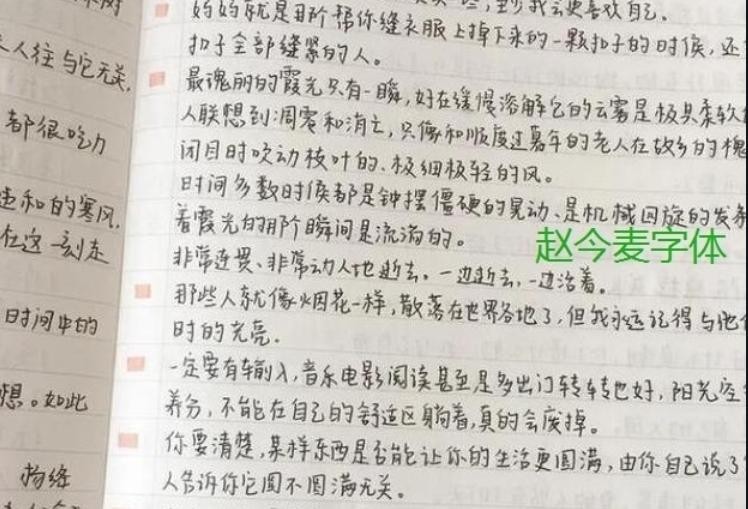 人往与它无关,
都很吃力
和的寒风,
在这一刻走
日时间中的
想。如此
妈妈就是那个帮你缝衣服上掉下来的一颗扣子的时候,还
扣子全部缝紧的人。
最瑰丽的霞光只有一瞬,好在缓慢溶解它的云雾是极其柔软
人联想到凋零和消亡,只像和顺度过暮年的老人在故乡的槐
闭目时吹动枝叶的、极细极轻的风。
时间多数时候都是钟摆僵硬的晃动、是机械回旋的发条
着霞光的那个瞬间是流淌的。
赵今麦字体
非常连贯、非常动人地逝去。一边逝去,一边活着。
那些人就像烟花一样,散落在世界各地了,但我永远记得与他
时的光亮.
一定要有输入,音乐电影阅读甚至是多出门转转也好,阳光空
养分,不能在自己的舒适区躺着,真的会废掉。
你要清楚,某样东西是否能让你的生活更圆满,由你自己说了
人告诉你它圆不圆满无关。